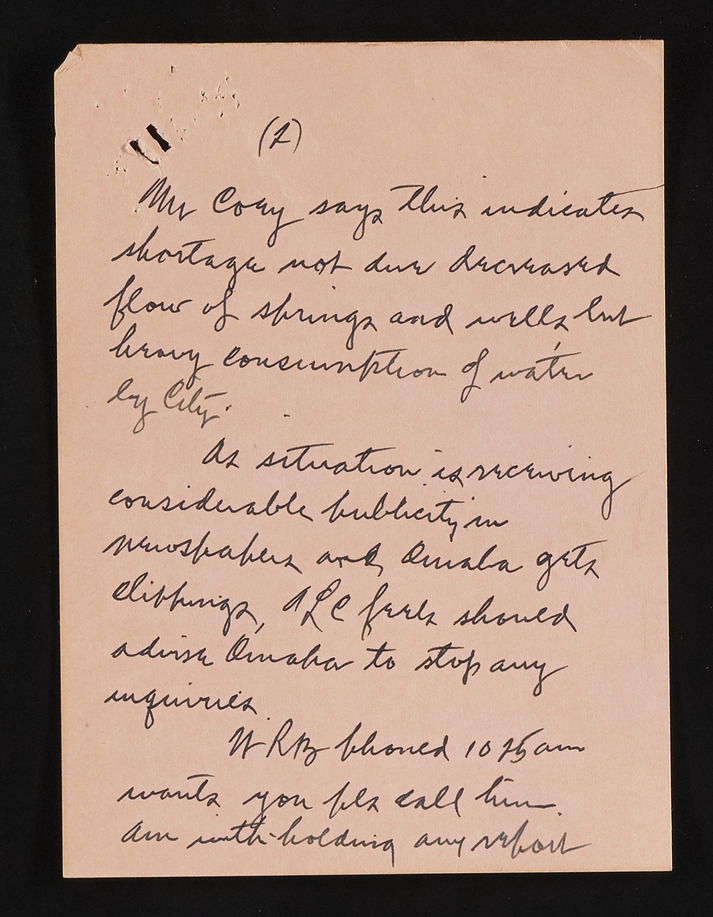 (2)
Mr Cory says this indicates
shortage not due decreased
flow of springs and wells but
heavy consumption of water
by City.
As situation is receiving
considerable publicity in
newspapers and Omaha gets
clippings, ALC feels should
advise Omaha to stop any
inquiries.
WRB phoned 10 25 am
wants you pls call him.
Am with-holding any report